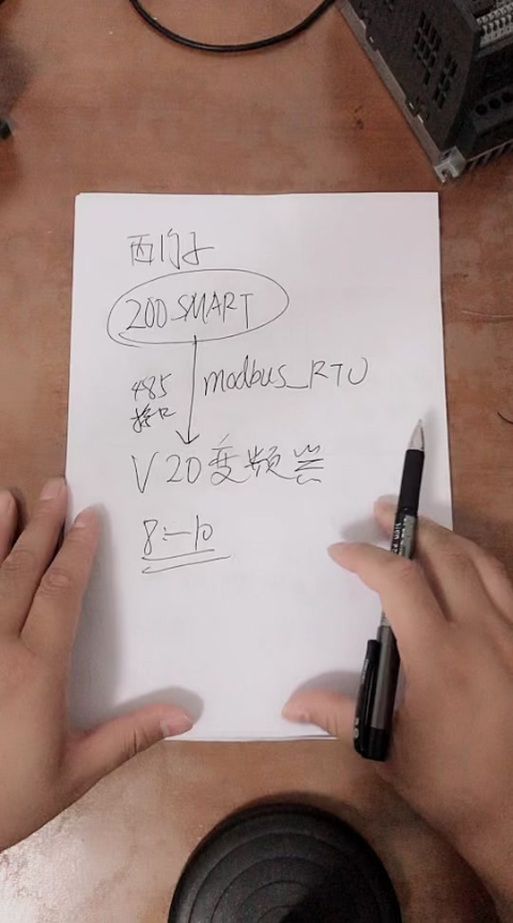 西门子
200 SMART
485
接口
modbus_RTU
V20变频器
8:-10